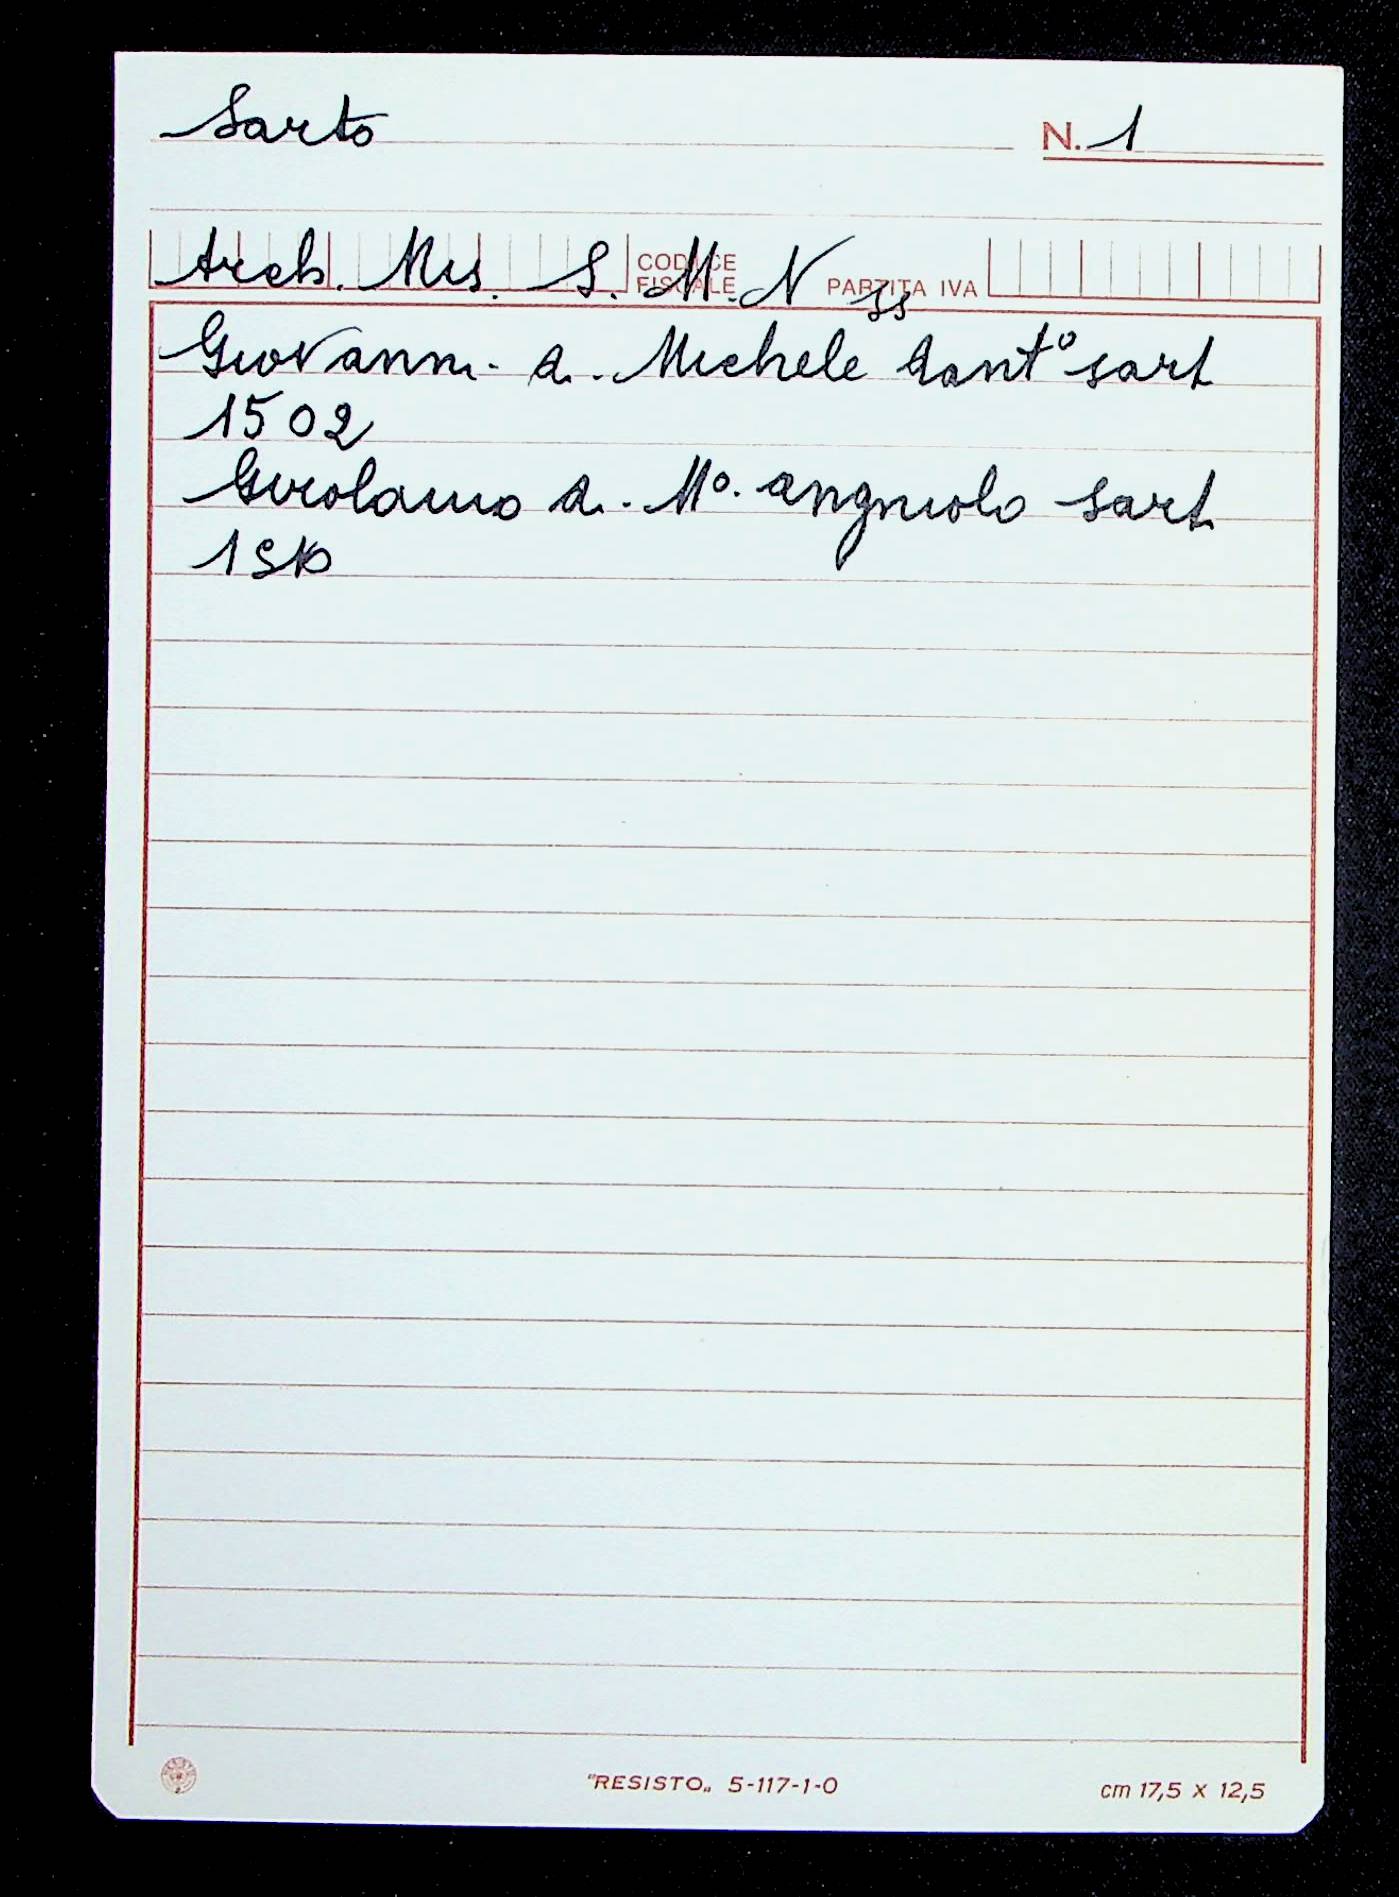 Sarto N. 1
Arch. Mis. S. M. N ss
CODICE FISCALE PARTITA IVA
Giovanni d. Michele dant° sart
1502
Girolamo d. M°. angniolo sart
"RESISTO„ 5-117-1-0 cm 17,5 x 12,5